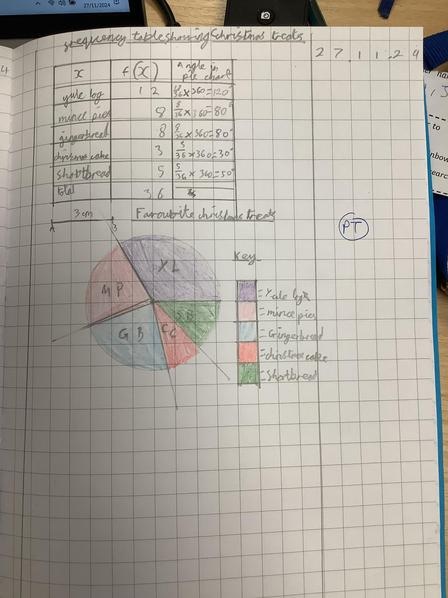 frequency table showing Christmas treats
27.11.24
x f(x) Angle in pie chart
yule log 12 ×360=120°
mince pies 8 8/36×360=80°
gingerbread 8 8/36×360=80°
christmas cake 3 ×360=30°
shortbread 5 5/36×360=50°
total 36
3cm
A B
Favourite christmas treats
PT
Key
YL
MP
GB
CC
SB
=Yule log
=mince pies
=Gingerbread
=christmas cake
=Shortbread
27/11/2024